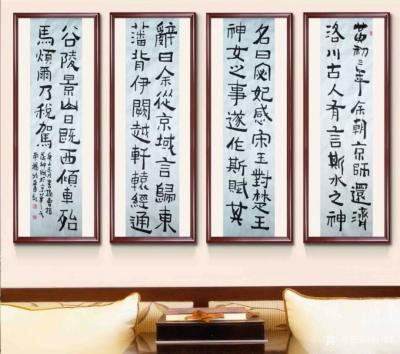 黄初三年余朝京师還濟
洛川古人有言斯水之神
名曰宓妃感宋玉對楚王
神女之事遂作斯賦其
辭曰余從京域言歸東
藩背伊闕越轘轅經通
谷陵景山日既西傾車殆
馬煩爾乃税駕